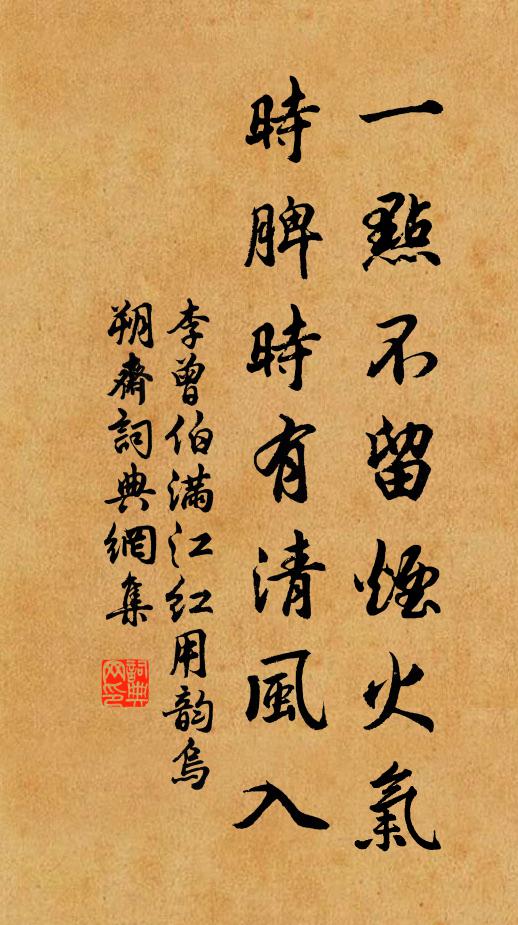 一點不留煙火氣
時脾時有清風入
李曾伯滿江红用韵烏
朔齋詞典網集
詞典网印